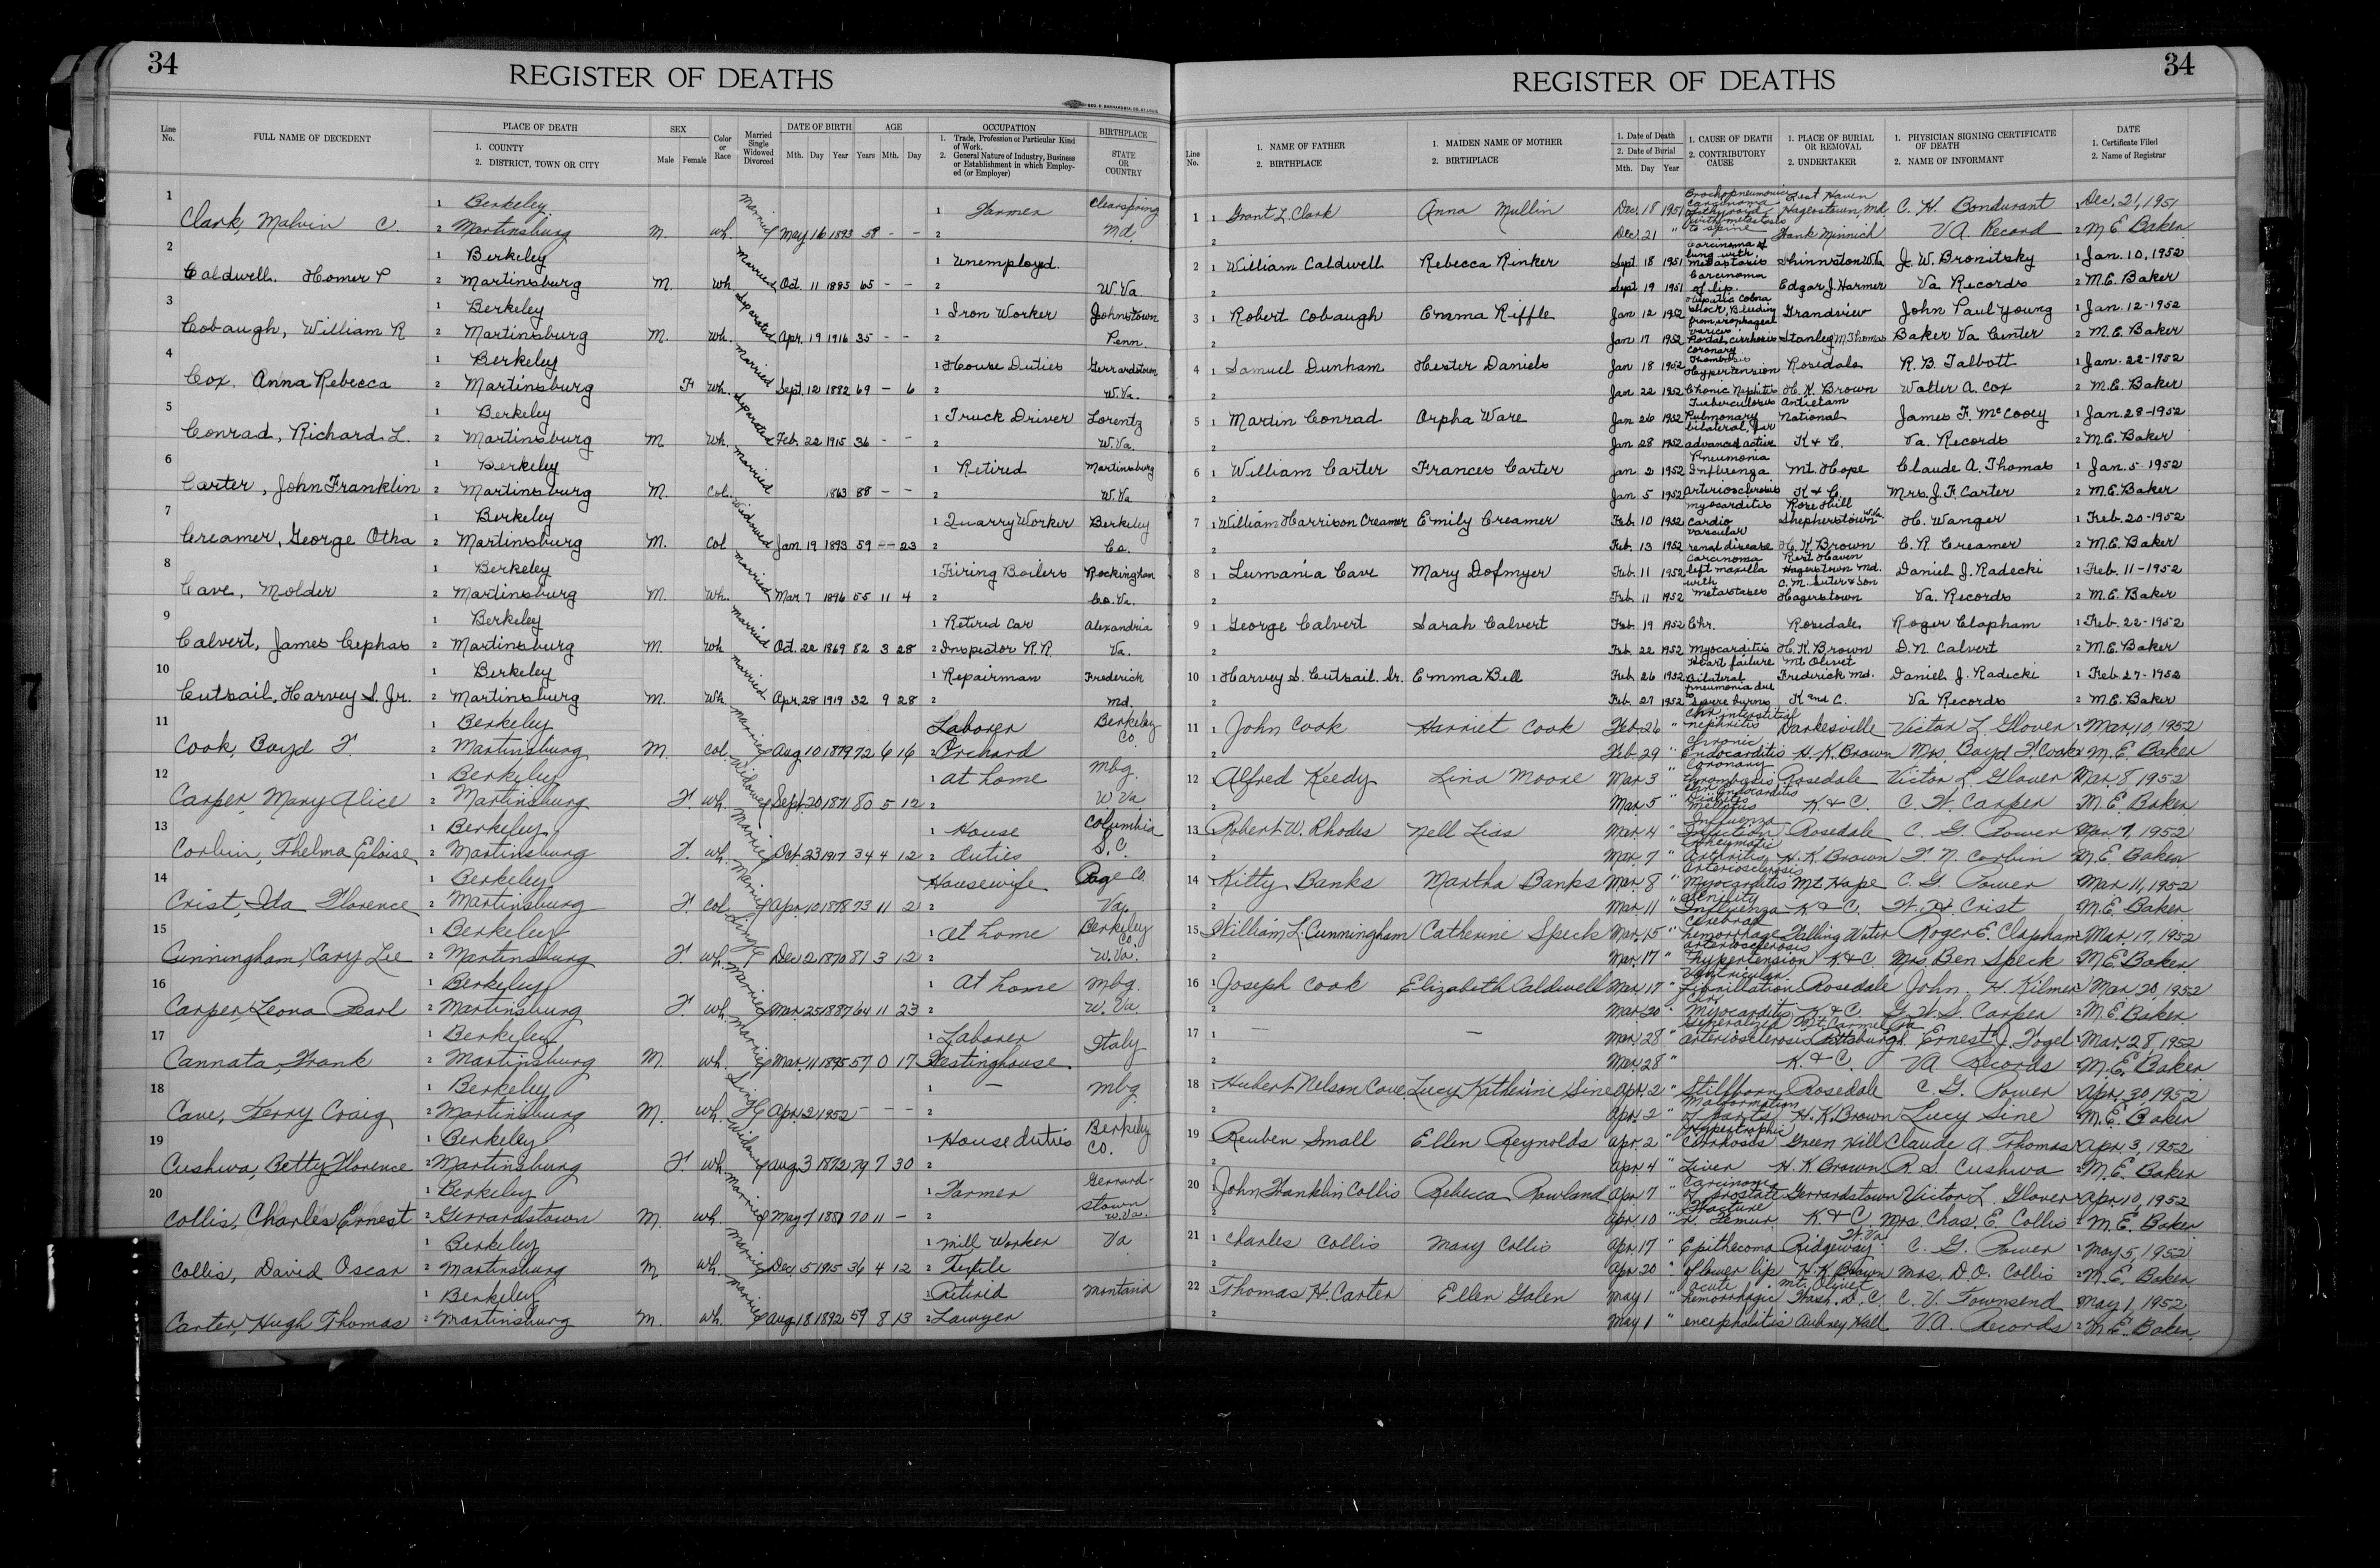 34
REGISTER OF DEATHS
Line No. FULL NAME OF DECEDENT PLACE OF DEATH 1. COUNTY 2. DISTRICT, TOWN OR CITY SEX Male Female Color or Race Married Single Widowed Divorced DATE OF BIRTH Mth. Day Year AGE Years Mth. Day OCCUPATION 1. Trade, Profession or Particular Kind of Work. 2. General Nature of Industry, Business or Establishment in which Employed (or Employer) BIRTHPLACE STATE OR COUNTRY
1 1 Berkeley Married 1 Farmer Clearspring
Clark, Malvin C. 2 Martinsburg M. Wh. May 16 1893 58 - - 2 Md.
2 1 Berkeley Married 1 Unemployed.
Caldwell. Homer P 2 Martinsburg M. Wh. Oct. 11 1885 65 - - 2 W. Va.
3 1 Berkeley Separated 1 Iron Worker Johnstown
Cobaugh, William R 2 Martinsburg M. Wh. Apr. 19 1916 35 - - 2 Penn.
4 1 Berkeley Married 1 House Duties Gerrardstown
Cox, Anna Rebecca 2 Martinsburg F Wh. Sept. 12 1882 69 - 6 2 W. Va.
5 1 Berkeley Separated 1 Truck Driver Lorentz
Conrad, Richard L. 2 Martinsburg M. Wh. Feb. 22 1915 36 - - 2 W. Va.
6 1 Berkeley Married 1 Retired Martinsburg
Carter, John Franklin 2 Martinsburg M. Col. 1863 88 - - 2 W. Va
7 1 Berkeley Widowed 1 Quarry Worker Berkeley
Creamer, George Otha 2 Martinsburg M. Col Jan. 19 1893 59 - - 23 2 Co.
8 1 Berkeley Married 1 Firing Boilers Rockingham
Cave, Molder 2 Martinsburg M. Wh. Mar. 7 1896 55 11 4 2 Co. Va.
9 1 Berkeley Married 1 Retired Car Alexandria
Calvert, James Cephas 2 Martinsburg M. Wh Oct. 22 1869 82 3 28 2 Inspector R.R. Va.
10 1 Berkeley Married 1 Repairman Frederick
Cutsail, Harvey S. Jr. 2 Martinsburg M. Wh. Apr. 28 1919 32 9 28 2 Md.
11 1 Berkeley Married Laborer Berkeley Co.
Cook, Boyd F. 2 Martinsburg M. Col. Aug 10 1879 72 6 16 2 Orchard
12 1 Berkeley Widowed 1 at home Mbg.
Carper, Mary Alice 2 Martinsburg F. Wh. Sept. 20 1871 80 5 12 2 W. Va
13 1 Berkeley Married 1 House Columbia
Corbin, Thelma Eloise 2 Martinsburg F. Wh. Oct. 23 1917 34 4 12 2 duties S.C.
14 1 Berkeley Married Housewife Page Co.
Crist, Ida Florence 2 Martinsburg F. Col. Apr. 10 1878 73 11 2 2 Va.
15 1 Berkeley Single 1 at home Berkeley Co.
Cunningham, Cary Lee 2 Martinsburg F. Wh. Dec 2 1870 81 3 12 2 W. Va.
16 1 Berkeley Married 1 At home Mbg.
Carper, Leona Pearl 2 Martinsburg F. Wh. Mar. 25 1887 64 11 23 2 W. Va.
17 1 Berkeley Married 1 Laborer Italy
Cannata, Frank 2 Martinsburg M. Wh. Mar. 11 1895 57 0 17 Westinghouse
18 1 Berkeley Single 1 - Mbg.
Cave, Terry Craig 2 Martinsburg M. Wh. Apr. 2 1952 - - - 2
19 1 Berkeley Widowed 1 House duties Berkeley Co.
Cushwa, Betty Florence 2 Martinsburg F. Wh. Aug 3 1872 79 7 30 2
20 1 Berkeley Married 1 Farmer Gerrardstown
Collis, Charles Ernest 2 Gerrardstown M. Wh. May 7 1881 70 11 - 2 W. Va.
1 Berkeley Married 1 Mill Worker Va
Collis, David Oscar 2 Martinsburg M Wh. Dec. 5 1915 36 4 12 2 Textile
1 Berkeley Married 1 Retired Montana
Carter, Hugh Thomas 2 Martinsburg M. Wh. Aug 18 1892 59 8 13 2 Lawyer
34
REGISTER OF DEATHS
Line No. 1. NAME OF FATHER 2. BIRTHPLACE 1. MAIDEN NAME OF MOTHER 2. BIRTHPLACE 1. Date of Death 2. Date of Burial Mth. Day Year 1. CAUSE OF DEATH 2. CONTRIBUTORY CAUSE 1. PLACE OF BURIAL OR REMOVAL 2. UNDERTAKER 1. PHYSICIAN SIGNING CERTIFICATE OF DEATH 2. NAME OF INFORMANT DATE 1. Certificate Filed 2. Name of Registrar
1 1 Grant L. Clark Anna Mullin Dec. 18 1951 Bronchopneumonia Carcinoma of thyroid Rest Haven Hagerstown, Md. C. H. Bondurant 1 Dec. 21, 1951
2 Dec. 21 " with metastasis to spine Frank Minnich VA. Record 2 M. E. Baker
2 1 William Caldwell Rebecca Rinker Sept. 18 1951 Carcinoma of lung with metastasis Shinnston W. Va J. W. Bronitsky 1 Jan. 10, 1952
2 Sept 19 1951 Carcinoma of lip. Edgar J. Harmer Va Records 2 M.E. Baker
3 1 Robert Cobaugh Emma Riffle Jan 12 1952 Hepatic Coma Shock, Bleeding from esophageal varices Grandview John Paul Young 1 Jan. 12-1952
2 Jan. 17 1952 Portal cirrhosis Stanley M Thomas Baker Va Center 2 M.E. Baker
4 1 Samuel Dunham Hester Daniels Jan 18 1952 Coronary Thrombosis Hypertension Rosedale R. B. Talbott 1 Jan. 22-1952
2 Jan. 22 1952 Chronic Nephritis H. K. Brown Walter A. Cox 2 M.E. Baker
5 1 Martin Conrad Orpha Ware Jan 26 1952 Tuberculosis Pulmonary bilateral, far Antietam National James F. McCooey 1 Jan. 28-1952
2 Jan 28 1952 advanced active K & C. Va. Records 2 M.E. Baker
6 1 William Carter Frances Carter Jan 2 1952 Pneumonia Influenza Mt. Hope Claude A. Thomas 1 Jan. 5-1952
2 Jan 5 1952 arteriosclerosis K & C. Mrs. J. F. Carter 2 M.E. Baker
7 1 William Harrison Creamer Emily Creamer Feb. 10 1952 myocarditis Cardio vascular Rose Hill Shepherstown W.Va. H. Wanger 1 Feb. 20-1952
2 Feb. 13 1952 renal disease H. K. Brown C. R. Creamer 2 M.E. Baker
8 1 Lumania Cave Mary Dofmyer Feb. 11 1952 Carcinoma left maxilla Rest Haven Hagerstown Md. Daniel J. Radecki 1 Feb. 11-1952
2 Feb. 11 1952 with metastases C. M. Suter & Son Hagerstown Va. Records 2 M.E. Baker
9 1 George Calvert Sarah Calvert Feb. 19 1952 Chr. Rosedale Roger Clapham 1 Feb. 22-1952
2 Feb. 22 1952 Myocarditis H. K. Brown D. N. Calvert 2 M.E. Baker
10 1 Harvey S. Cutsail. Sr. Emma Bell Feb. 26 1952 Heart failure Bilateral pneumonia due Mt Olivet Frederick Md. Daniel J. Radecki 1 Feb. 27-1952
2 Feb. 27 1952 to severe burns K and C. Va Records 2 M.E. Baker
11 1 John Cook Harriet Cook Feb. 26 " Chr. interstitial nephritis Darkesville Victor L. Glover 1 Mar. 10, 1952
2 Feb. 29 " Chronic Endocarditis H. K. Brown Mrs. Boyd F. Cook 2 M. E. Baker
12 1 Alfred Keedy Lina Moore Mar. 3 " Coronary thrombosis Rosedale Victor L. Glover Mar. 8, 1952
2 Mar. 5 " Endocarditis K & C. C. W. Carper M. E. Baker
13 1 Robert W. Rhodes Nell Lias Mar. 4 " Influenza Infection Rosedale C. G. Power Mar. 7, 1952
2 Mar. 7 " Rheumatic Arthritis H. K. Brown F. N. Corbin M. E. Baker
14 1 Kitty Banks Martha Banks Mar. 8 " arteriosclerosis Myocarditis Mt. Hope C. G. Power Mar. 11, 1952
2 Mar. 11 " Senility Influenza K & C. W. H. Crist 2 M. E. Baker
15 1 William L. Cunningham Catherine Speck Mar. 15 " Cerebral hemorrhage Falling Water Roger E. Clapham Mar. 17, 1952
2 Mar. 17 " arteriosclerosis hypertension K & C Mrs. Ben Speck 2 M E Baker
16 1 Joseph Cook Elizabeth Caldwell Mar. 17 " Ventricular fibrillation Rosedale John H. Kilmer Mar. 20, 1952
2 Mar. 20 " Chr. Myocarditis K & C. G. W. S. Carper 2 M. E. Baker
17 1 - - Mar. 28 " Generalized arteriosclerosis Mt Carmel Pittsburgh Ernest J. Fogel Mar. 28, 1952
2 Mar. 28 " K & C. VA Records M. E. Baker
18 1 Hubert Nelson Cave Lucy Katherine Sine Apr. 2 " Stillborn Rosedale C. G. Power Apr. 30, 1952
2 Apr. 2 " Malformation of parts H. K. Brown Lucy Sine M. E. Baker
19 1 Reuben Small Ellen Reynolds Apr. 2 " Hypertrophic Cirrhosis Green Hill Claude A. Thomas Apr. 3, 1952
2 Apr 4 " Liver H. K. Brown R. S. Cushwa 2 M. E. Baker
20 1 John Franklin Collis Rebecca Rowland Apr. 7 " Carcinoma of prostate Gerrardstown Victor L. Glover Apr. 10, 1952
2 Apr. 10 " Fracture r. Femur K & C Mrs. Chas. E. Collis 2 M. E. Baker
21 1 Charles Collis Mary Collis Apr. 17 " Epithecoma Ridgeway W. Va C. G. Power 1 May 5, 1952
2 Apr. 20 " of lower lip H. K. Brown Mrs. D. O. Collis 2 M. E. Baker
22 1 Thomas H. Carter Ellen Galen May 1 " acute hemorrhagic Mt. Olivet Wash. D. C. C. V. Townsend May 1, 1952
2 May 1 " encephalitis Aubrey Hall V.A. Records 2 M. E. Baker